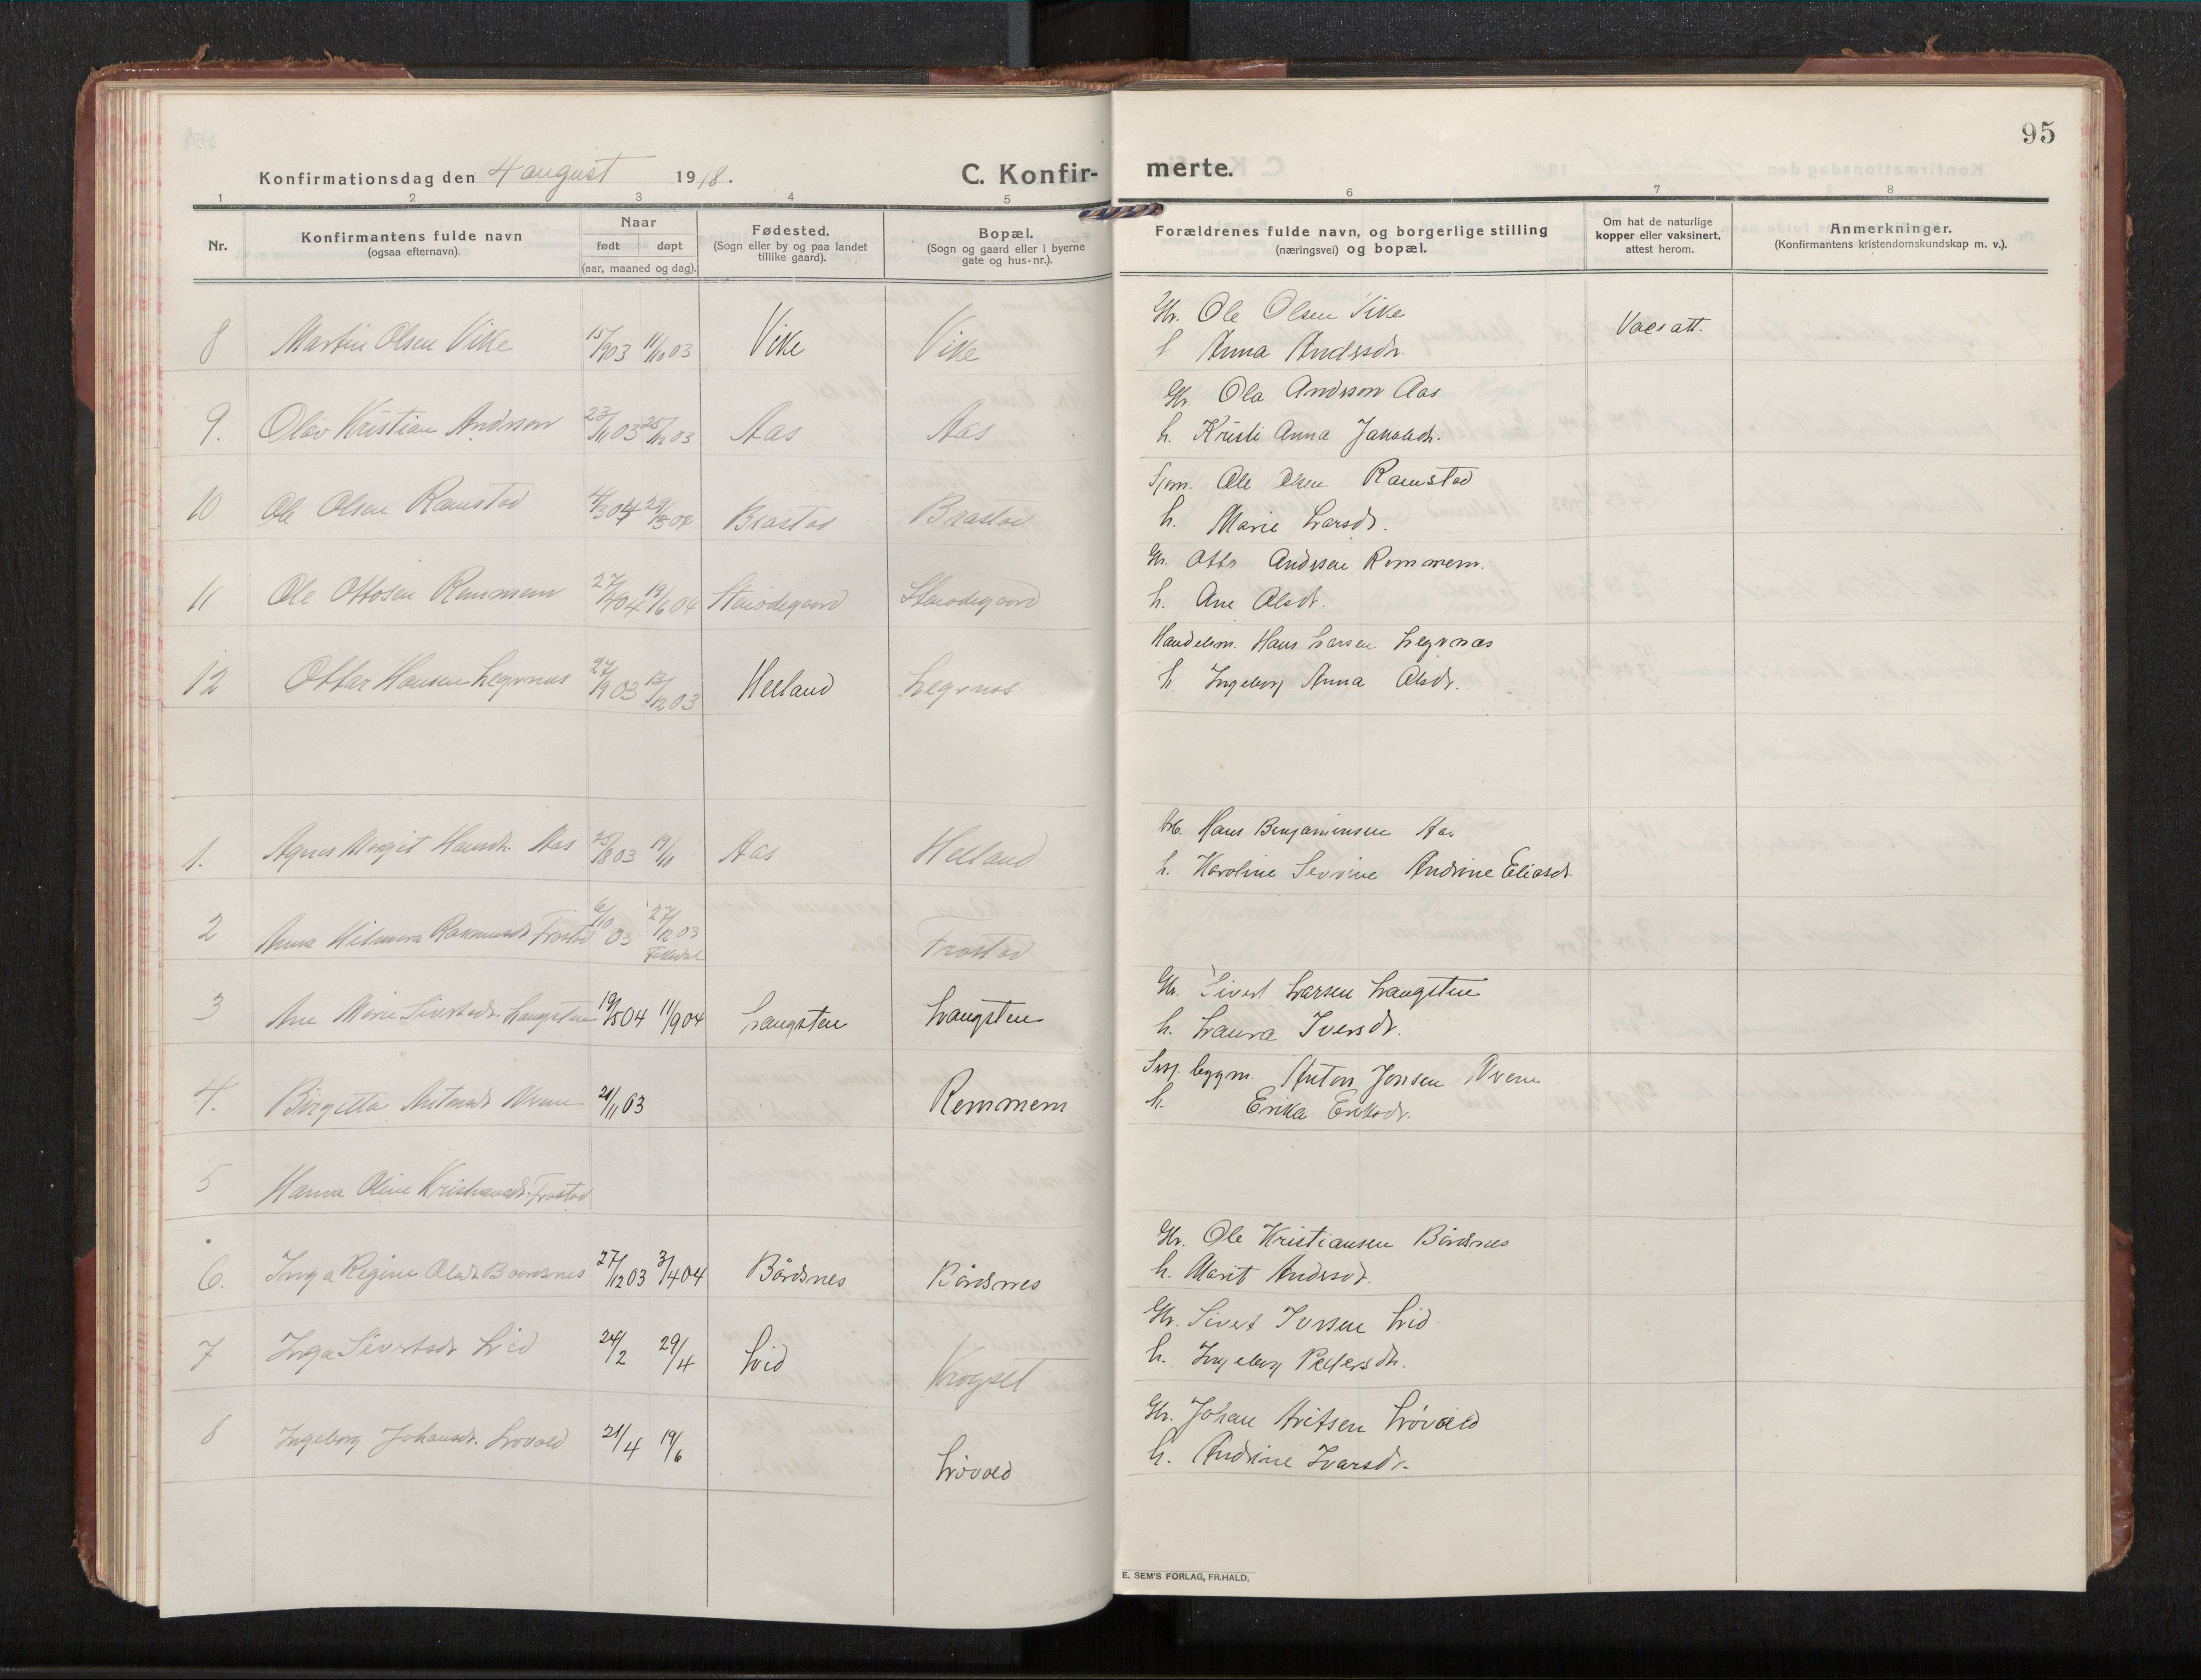 95
Konfirmationsdag den 4 august 1918.
C. Konfirmerte.
1 2 3 4 5 6 7 8
Nr.
Konfirmantens fulde navn
(ogsaa efternavn).
Naar
født døpt
(aar, maaned og dag).
Fødested.
(Sogn eller by og paa landet
tillike gaard).
Bopæl.
(Sogn og gaard eller i byerne
gate og hus-nr.).
Forældrenes fulde navn, og borgerlige stilling
(næringsvei) og bopæl.
Om hat de naturlige
kopper eller vaksinert,
attest herom.
Anmerkninger.
(Konfirmantens kristendomskundskap m. v.).
8 Martin Olsen Vike 15/9 03 11/10 03 Vike Vike Gbr. Ole Olsen Vike
h. Anna Andersdr.
Vacs att.
9. Olav Kristian Andrson 23/11 03 25/12 03 Aas Aas Gbr. Ola Andrson Aas
h. Kristi Anna Jakobsdr.
10 Ole Olsen Ramstad Brastad Brastad Ole Olsen Ramstad
h. Marie Larsdr.
11 Ole Ottosen Remmem 19/6 04 Gbr. Otto Andrsen Remmem.
h. Ane Olsdr.
12 Ottar Hansen Legrnæs 27/9 03 13/12 03 Helland Legrnæs Handelsm. Hans Larsen Legrnæs
h. Ingeborg Anna Olsdr.
1. Agnes Margit Hansdr. Aas 25/8 03 19/11 Aas Helland Arb. Hans Benjaminsen Aas
h. Karoline Severine Andrine Eliasdr.
2 Anna Hilmara Rasmusdr Frostad 6/10 03 27/12 03 Frostad
Fiksdal
3 Ane Marie Sivertsdr. Langsten 19/5 04 11/9 04 Langsten Langsten Gbr. Sivert Larsen Langsten
h. Laura Iversdr.
4. Birgitte Antonsdr 21/11 03 Remmem Anton Jonsen
h. Erika Eriksdr.
5 Hanna Oline Kristiansdr. Frostad
6. Inga Regine Olsdr Baardsnes 27/12 03 3/4 04 Bårdsnes Bårdsnes Gbr. Ole Kristiansen Bårdsnes
h. Marit Andersdr.
7 Inga Sivertsdr Lid 24/2 29/4 Lid Krogset Gbr. Sivert Iversen Lid
h. Ingeborg Pedersdr.
8 Ingeborg Johansdr. Løvold 21/4 19/6 Løvold Gbr. Johan Løvold
h. Andrine Ivarsdr.
E. SEM'S FORLAG, FR.HALD.